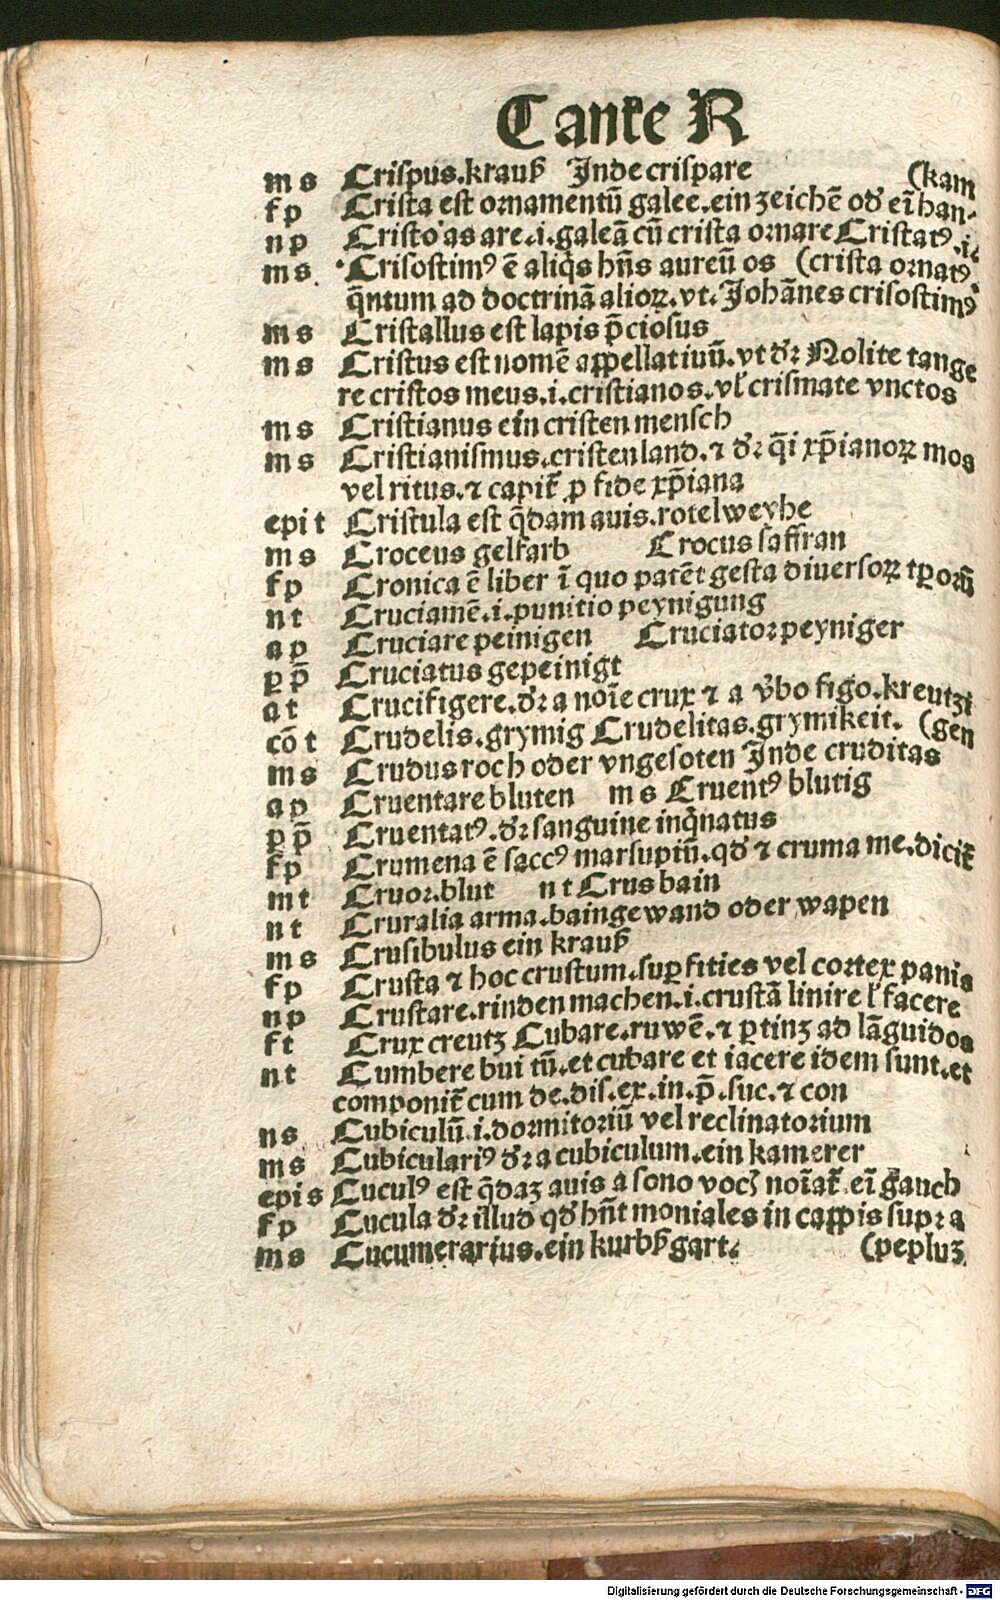 C anťe R
m s Crispus.krauß Inde crispare (kam
f p Crista est ornamentū galee.ein zeichē od' eī han-
n p Cristo as are.i.galeā cū crista ornare Cristatꝰ.i.
m s. Crisostimꝰ ē aliq̄s hn̄s aureū os (crista ornatꝰ
q̄ntum ad doctrinā alioꝝ.vt.Johānes crisostimꝰ
m s Cristallus est lapis p̄ciosus
m s Cristus est nomē appellatiuū.vt d'r Nolite tange
re cristos meus.i.cristianos.vl' crismate vnctos
m s Cristianus ein cristen mensch
m s Cristianismus.cristenland.⁊ d'r q̄i xp̄ianoꝝ mos
vel ritus.⁊ capit̄ ꝓ fide xp̄iana
epi t Cristula est q̄dam auis.rotelweyhe
m s Croceus gelfarb Crocus saffran
f p Cronica ē liber ī quo patēt gesta diuersoꝝ tꝑoꝝ
n t Cruciamē.i.punitio peynigung
a p Cruciare peinigen Cruciator peyniger
p p̄ Cruciatus gepeinigt
a t Crucifigere.d'r a noīe crux ⁊ a v̓bo figo.kreutzi
cō t Crudelis.grymig Crudelitas.grymikeit. (gen
m s Crudus roch oder vngesoten Inde cruditas
a p Cruentare bluten m s Cruentꝰ blutig
p p̄ Cruentatꝰ.d'r sanguine inq̄natus
f p Crumena ē saccꝰ marsupiū.qd' ⁊ cruma me.dicit̄
m t Cruor.blut n t Crus bain
n t Cruralia arma.baingewand oder wapen
m s Crusibulus ein krauß
f p Crusta ⁊ hoc crustum.suꝑfities vel cortex panis
n p Crustare.rinden machen.i.crustā linire l' facere
f t Crux creutz Cubare.ruwē.⁊ ꝑtinꝫ ad lāguidos
n t Cumbere bui tū.et cubare et iacere idem sunt.et
componit̄ cum de.dis.ex.in.p̄.suc.⁊ con
n s Cubiculū.i.dormitoriū vel reclinatorium
m s Cubiculariꝰ d'r a cubiculum.ein kamerer
epi s Cuculꝰ est q̄daꝫ auis a sono voc̄ noīat̄ eī gauch
f p Cucula d'r illud qd' hn̄t moniales in cappis supra
m s Cucumerarius.ein kurbßgart. (pepluꝫ
Digitalisierung gefördert durch die Deutsche Forschungsgemeinschaft - DFG